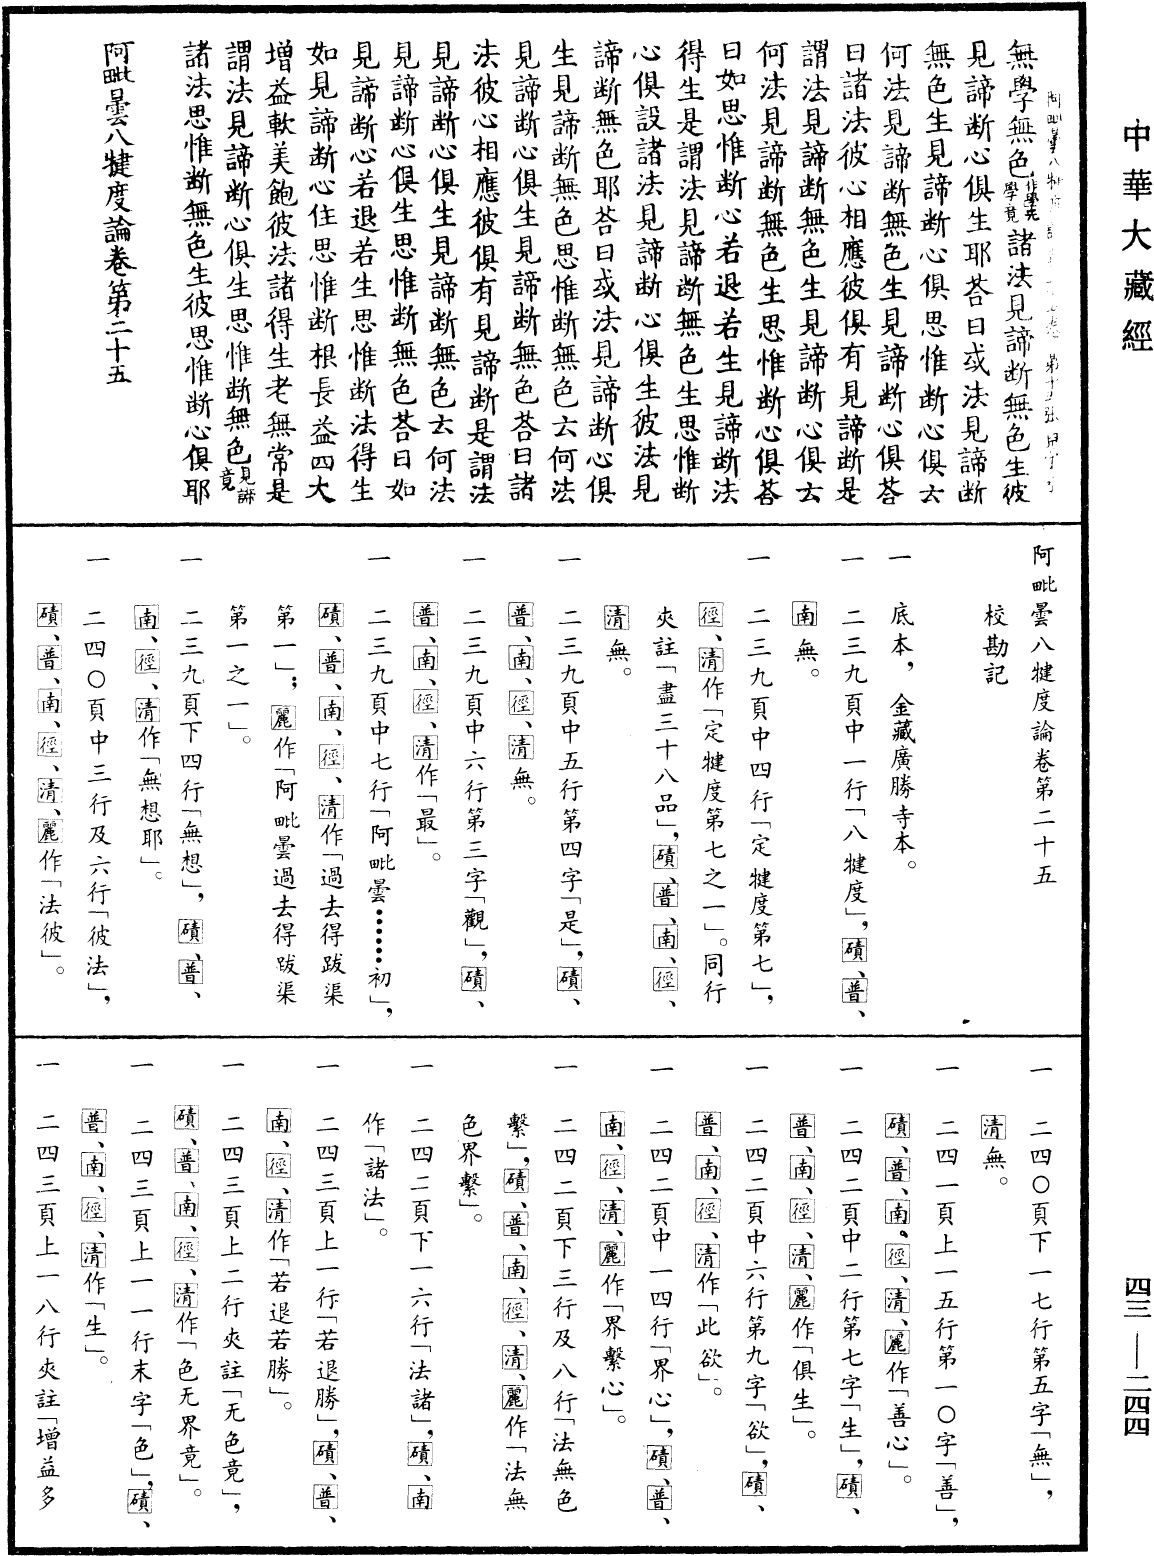 中華大藏經
無學無色作學无學竟諸法見諦断無色生彼
見諦断心俱生耶荅曰或法見諦断
無色生見諦断心俱思惟断心俱云
何法見諦断無色生見諦断心俱荅
曰諸法彼心相應彼俱有見諦断是
謂法見諦断無色生見諦断心俱云
何法見諦断無色生思惟断心俱荅
曰如思惟断心若退若生見諦断法
得生是謂法見諦断無色生思惟断
心俱設諸法見諦断心俱生彼法見
諦断無色耶荅曰或法見諦断心俱
生見諦断無色思惟断無色云何法
見諦断心俱生見諦断無色荅曰諸
法彼心相應彼俱有見諦断是謂法
見諦断心俱生見諦断無色云何法
見諦断心俱生思惟断無色荅曰如
見諦断心若退若生思惟断法得生
如見諦断心住思惟断根長益四大
增益軟美飽彼法諸得生老無常是
謂法見諦断心俱生思惟断無色見諦竟
諸法思惟断無色生彼思惟断心俱耶
阿毗曇八犍度論卷第二十五
阿毗曇八犍度論卷第二十五
校勘記
一　底本，金藏廣勝寺本。
一　二三九頁中一行「八犍度」，磧、普、
南無。
一　二三九頁中四行「定犍度第七」，
徑、清作「定犍度第七之一」。同行
夾註「盡三十八品」，磧、普、南、徑、
清無。
一　二三九頁中五行第四字「是」，磧、
普、南、徑、清無。
一　二三九頁中六行第三字「觀」，磧、
普、南、徑、清作「最」。
一　二三九頁中七行「阿毗曇……初」，
磧、普、南、徑、清作「過去得跋渠
第一」；麗作「阿毗曇過去得跋渠
第一之一」。
一　二三九頁下四行「無想」，磧、普、
南、徑、清作「無想耶」。
一　二四〇頁中三行及六行「彼法」，
磧、普、南、徑、清、麗作「法彼」。
一　二四〇頁下一七行第五字「無」，
清無。
一　二四一頁上一五行第一〇字「善」，
磧、普、南、徑、清、麗作「善心」。
一　二四二頁中二行第七字「生」，磧、
普、南、徑、清、麗作「俱生」。
一　二四二頁中六行第九字「欲」，磧、
普、南、徑、清作「此欲」。
一　二四二頁中一四行「界心」，磧、普、
南、徑、清、麗作「界繫心」。
一　二四二頁下三行及八行「法無色
繫」，磧、普、南、徑、清、麗作「法無
色界繫」。
一　二四二頁下一六行「法諸」，磧、南
作「諸法」。
一　二四三頁上一行「若退勝」，磧、普、
南、徑、清作「若退若勝」。
一　二四三頁上二行夾註「无色竟」，
磧、普、南、徑、清作「色无界竟」。
一　二四三頁上一一行末字「色」，磧、
普、南、徑、清作「生」。
一　二四三頁上一八行夾註「增益多
四三—二四四